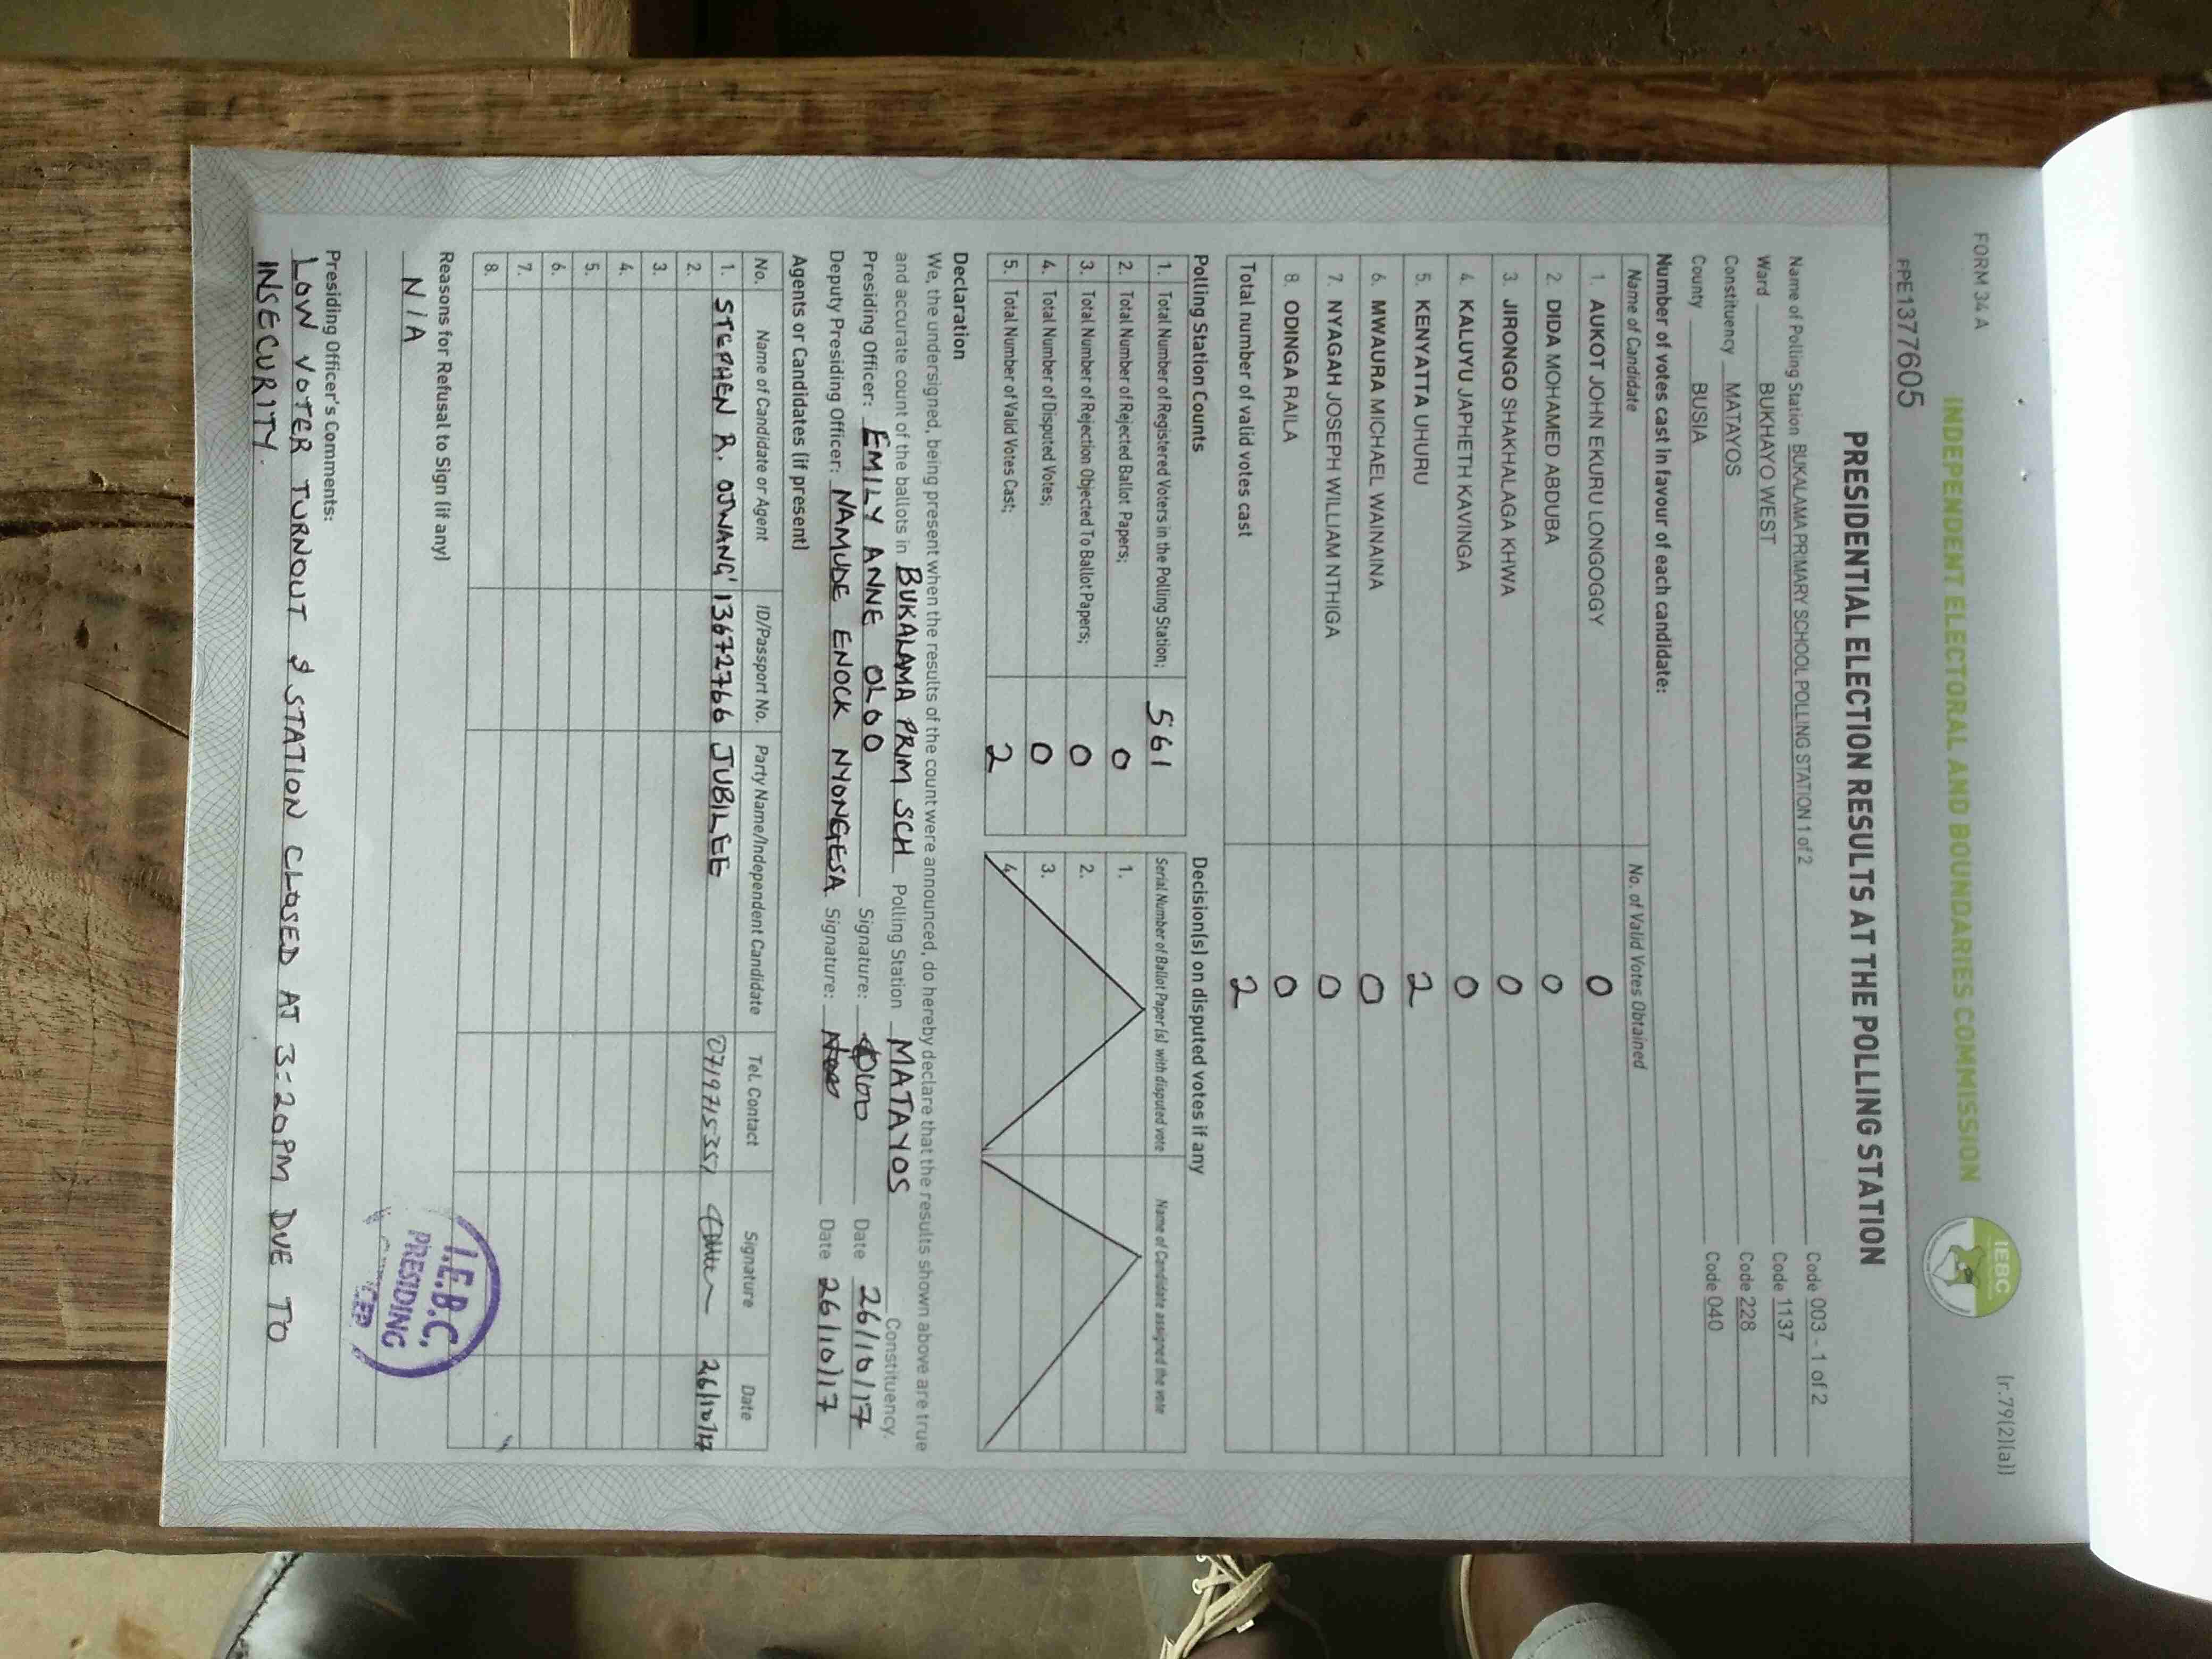 FORM 34 A
(r.79(2)(a))
INDEPENDENT ELECTORAL AND BOUNDARIES COMMISSION
IEBC
FPE1377605
PRESIDENTIAL ELECTION RESULTS AT THE POLLING STATION
Name of Polling Station BUKALAMA PRIMARY SCHOOL POLLING STATION 1 of 2 Code 003 - 1 of 2
Ward BUKHAYO WEST Code 1137
Constituency MATAYOS Code 228
County BUSIA Code 040
Number of votes cast in favour of each candidate:
Name of Candidate No. of Valid Votes Obtained
1. AUKOT JOHN EKURU LONGOGGY 0
2. DIDA MOHAMED ABDUBA 0
3. JIRONGO SHAKHALAGA KHWA 0
4. KALUYU JAPHETH KAVINGA 0
5. KENYATTA UHURU 2
6. MWAURA MICHAEL WAINAINA 0
7. NYAGAH JOSEPH WILLIAM NTHIGA 0
8. ODINGA RAILA 0
Total number of valid votes cast 2
Polling Station Counts
1. Total Number of Registered Voters in the Polling Station; 561
2. Total Number of Rejected Ballot Papers; 0
3. Total Number of Rejection Objected To Ballot Papers; 0
4. Total Number of Disputed Votes; 0
5. Total Number of Valid Votes Cast; 2
Decision(s) on disputed votes if any
Serial Number of Ballot Paper(s) with disputed vote Name of Candidate assigned the vote
1.
2.
3.
4.
Declaration
We, the undersigned, being present when the results of the count were announced, do hereby declare that the results shown above are true
and accurate count of the ballots in BUKALAMA PRIM SCH Polling Station MATAYOS Constituency.
Presiding Officer: EMILY ANNE OLOO Signature: Date 26/10/17
Deputy Presiding Officer: NAMUDE ENOCK NYONGESA Signature: Date 26/10/17
Agents or Candidates (if present)
No. Name of Candidate or Agent ID/Passport No. Party Name/Independent Candidate Tel. Contact Signature Date
1. STEPHEN R. OJWANG' 13672766 JUBILEE 0719715357 26/10/17
2.
3.
4.
5.
6.
7.
8.
Reasons for Refusal to Sign (if any)
N/A
I.E.B.C.
PRESIDING
Presiding Officer's Comments:
LOW VOTER TURNOUT & STATION CLOSED AT 3:20PM DUE TO
INSECURITY.